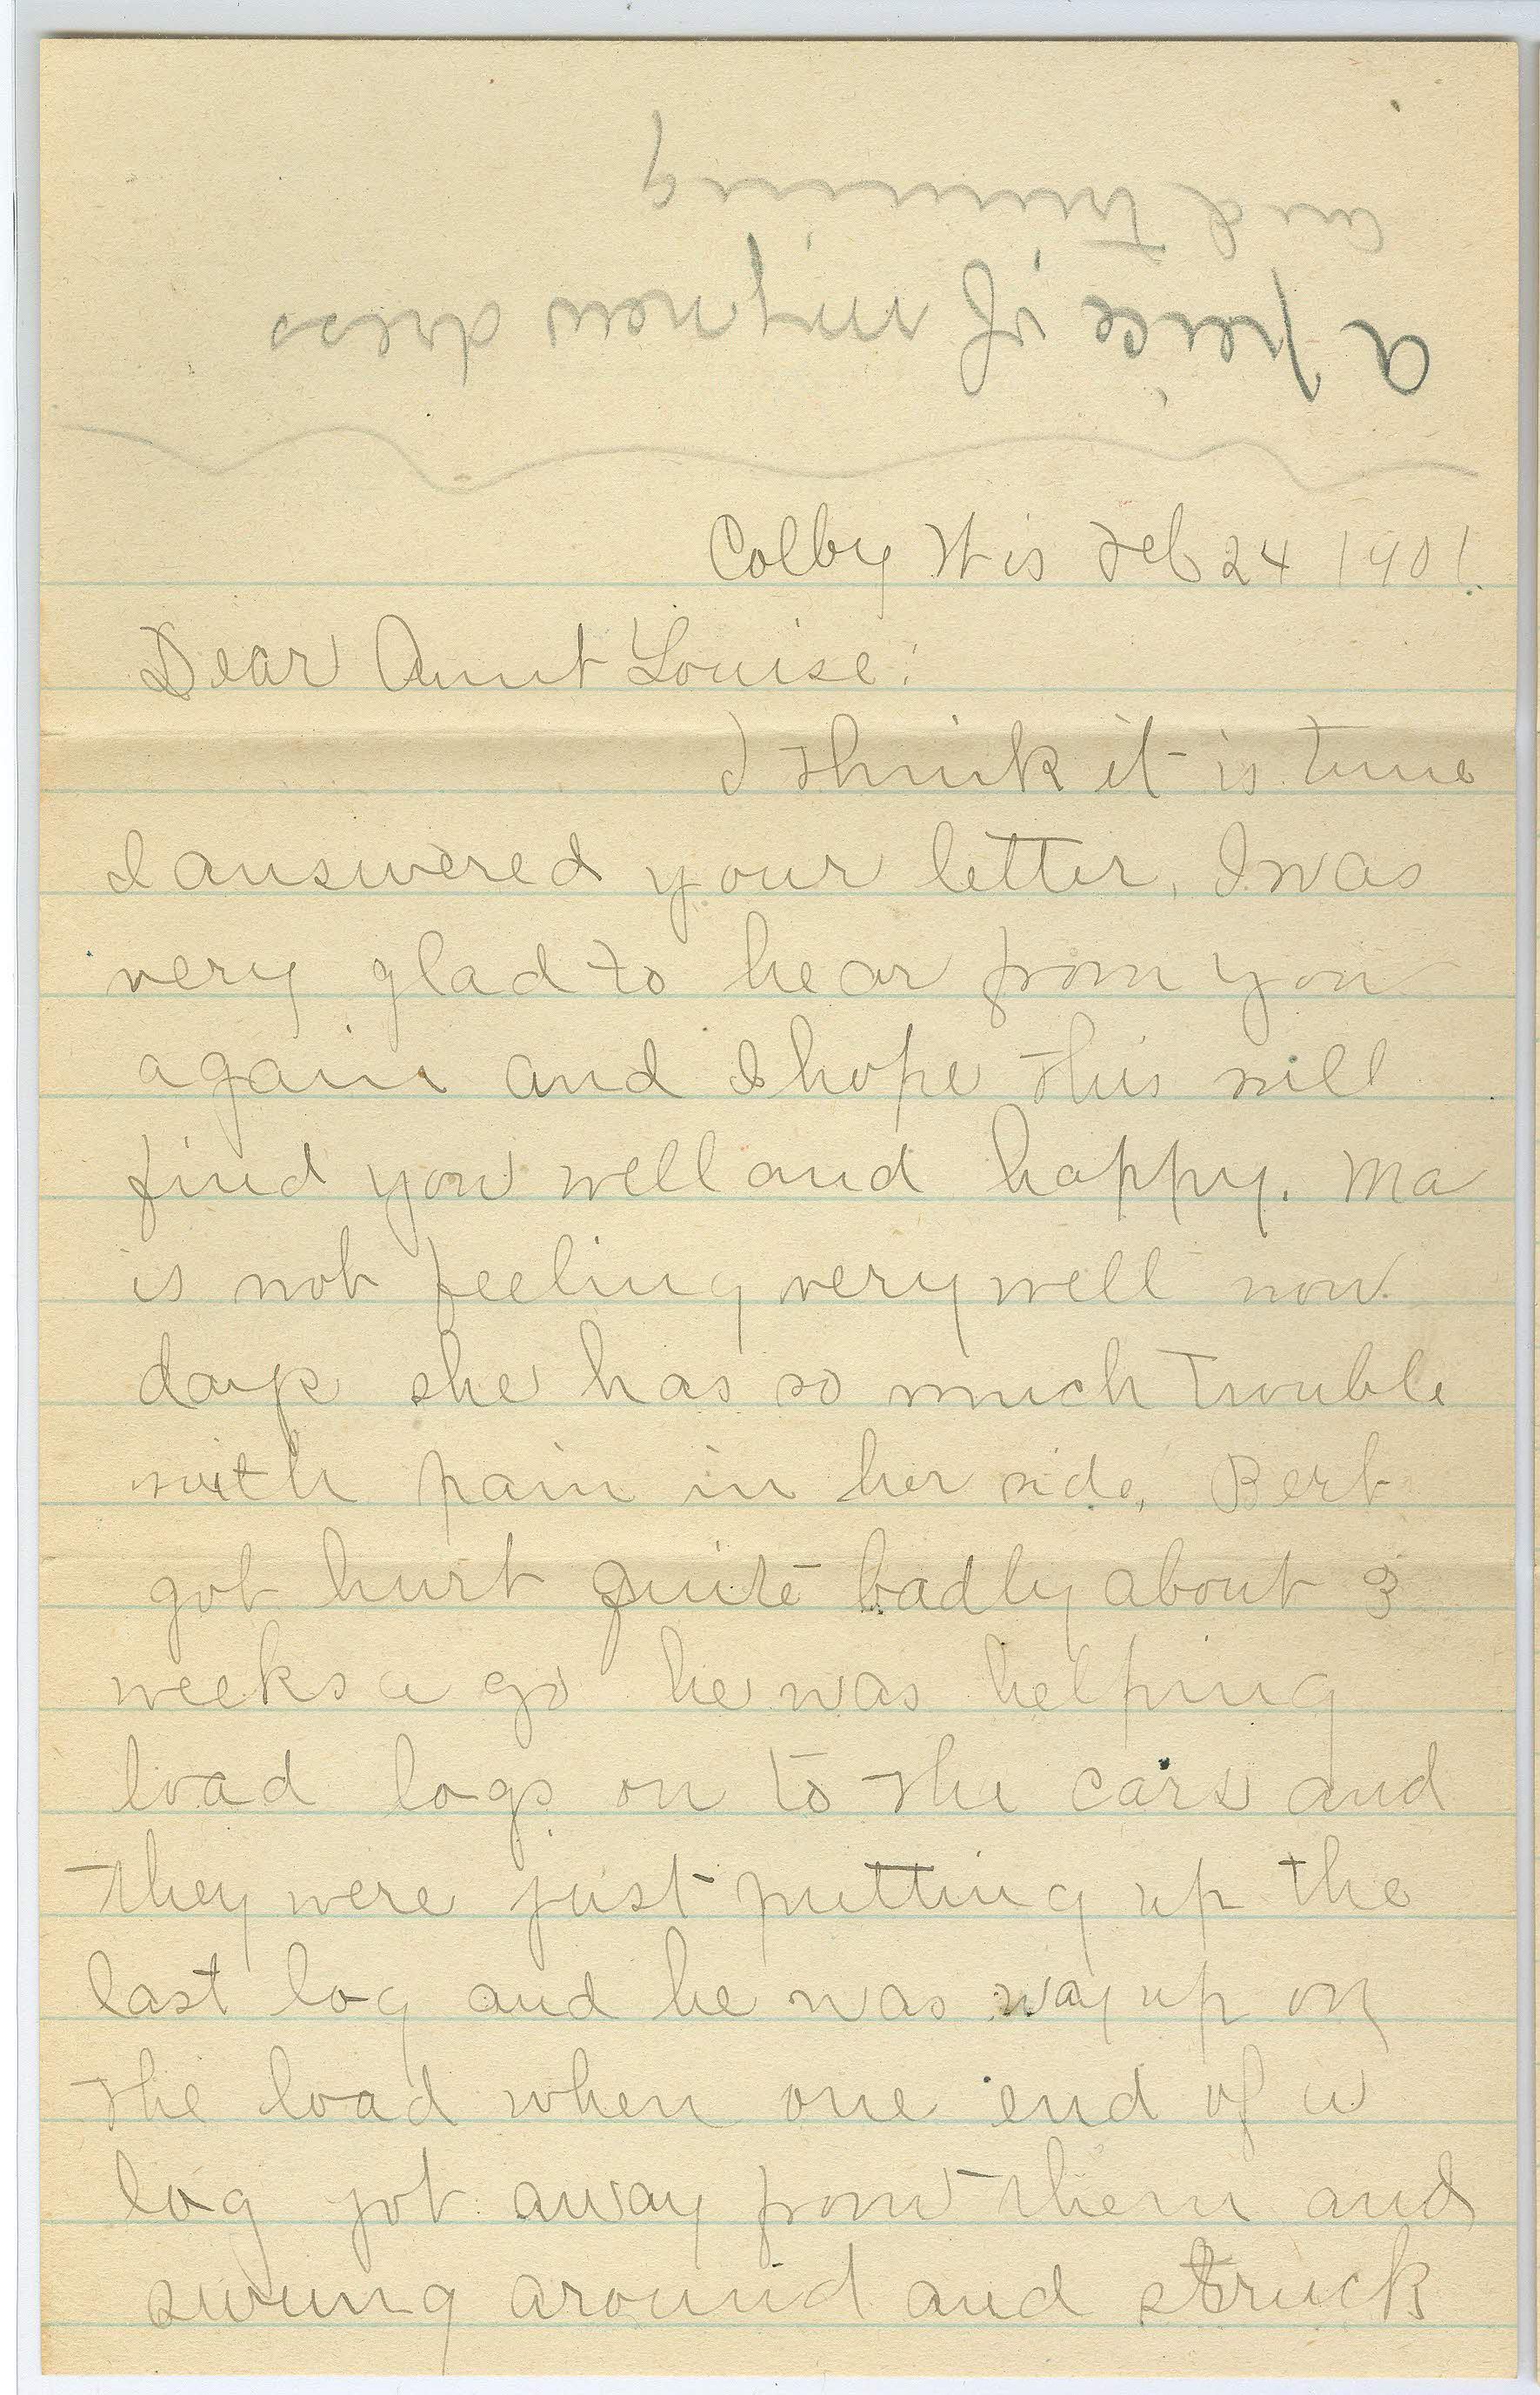 a peice of my new dress
and trimming
Colby Wis Feb 24 1901.
Dear Aunt Louise:
I think it is time
I answered your letter, I was
very glad to hear from you
again and I hope this will
find you well and happy. Ma
is not feeling very well now
days she has so much trouble
with pain in her side, Bert
got hurt quite badly about 3
weeks a go he was helping
load logs on to the cars and
they were just putting up the
last log and he was way up on
the load when one end of a
log got away from them and
swung around and struck